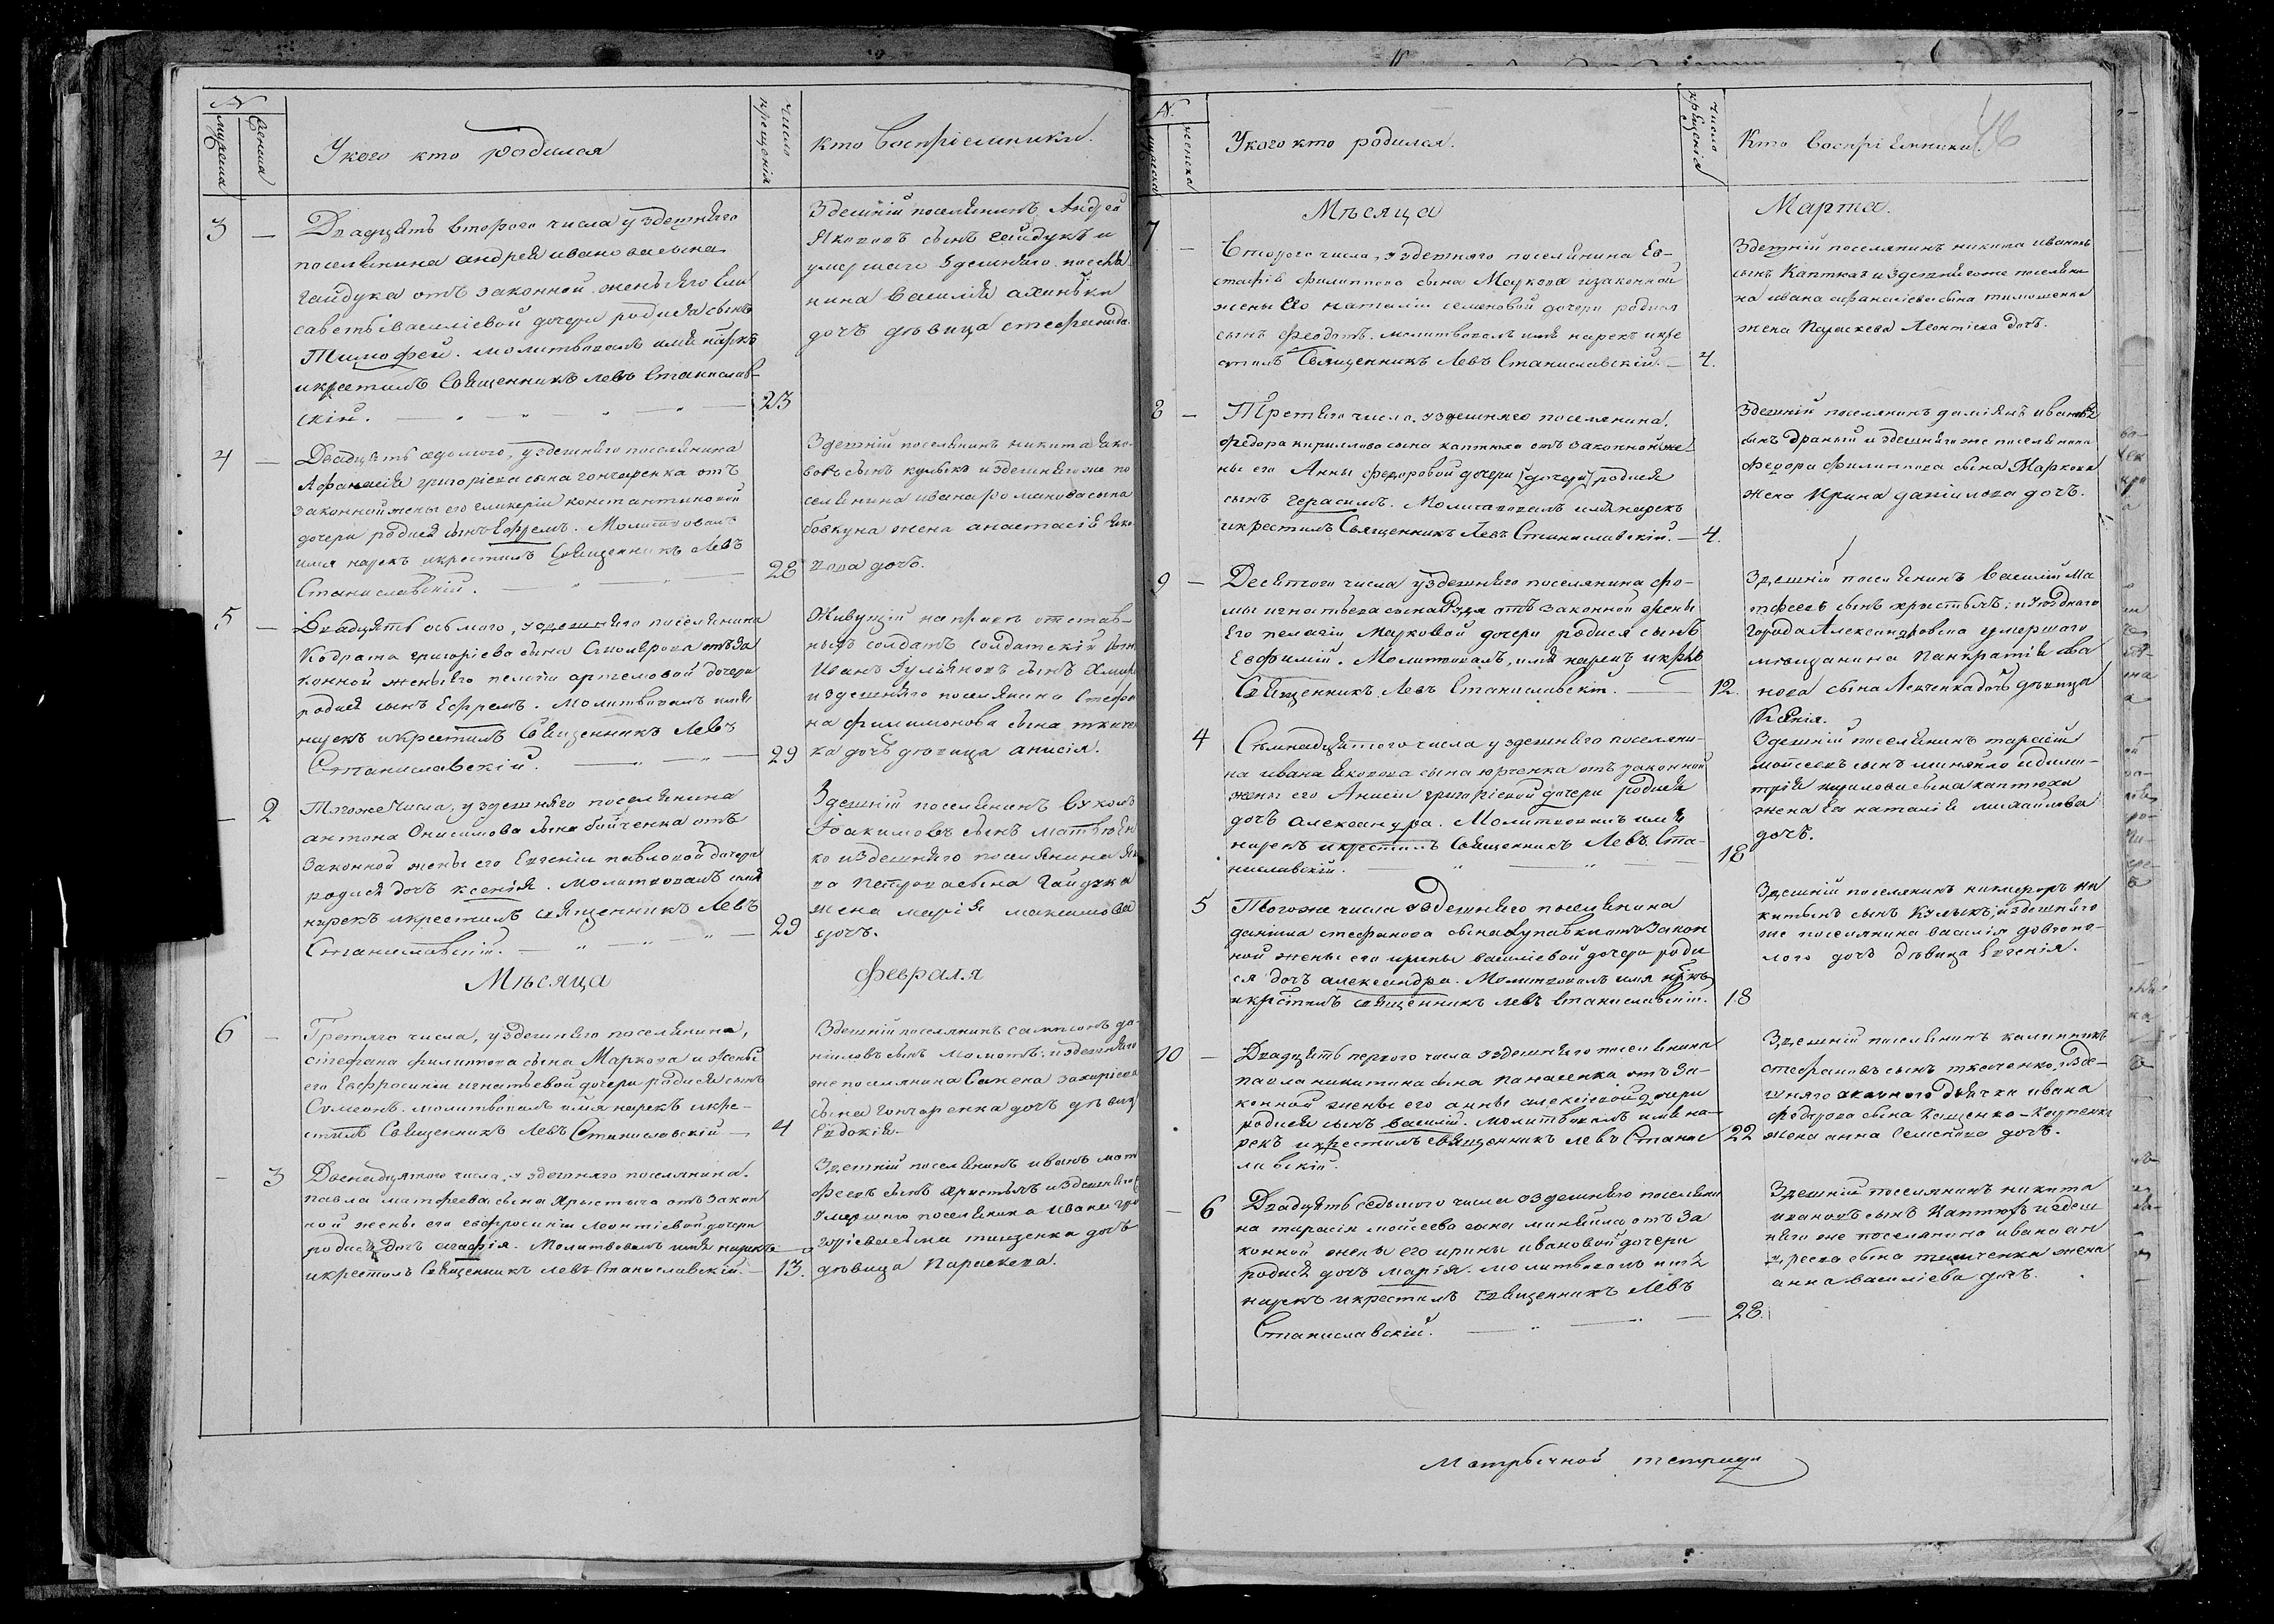 №
Мужеска
Женска
У кого кто родился
Число крещенія
кто Воспріемники.
3 —
Двадцять второго числа у здешняго
поселянина андрея иванова сына
гайдука отъ законной жены его Ели
саветы василіевой дочери родился сынъ
Тимофей. молитвовалъ имя нарекъ
икрестилъ Священникъ левъ Станислав-
скій.
23
Здешній поселянинъ Андрей
Яковов сынъ гайдукъ и
умершаго здешняго поселя
нина василія
дочъ девица стефанида
4 —
Двадцять седмого, у здешняго поселянина
Афанасія григоріева сына гончаренка отъ
законной жены его гликеріи константиновой
дочери родился сынъ Ефремъ. Молитвовалъ
имя нарекъ икрестилъ Священникъ Левъ
Станиславскій.
28
Здешній поселянинъ никита яко-
вовъ сынъ кулыкъ издешнягоже по
селянина ивана романова сына
бовкуна жена анастасія яко
вова дочъ.
5 —
Двадцять осьмого, уздешняго поселянина
Кодрата григоріева сына отъ за
конной жены его пелагіи артемовой дочери
родился сынъ Ефремъ. Молитвовалъ имя
нарекъ икрестилъ Священникъ Левъ
Станиславскій.
29
Живущій отстав-
ныхъ солдатъ солдатскій сынъ
Иванъ сынъ
издешняго поселянина Стефа
на филимонова сына ткачен
ка дочъ девица анисія.
— 2
Тогоже Числа, у здешняго поселянина
антона Онисимова сына бойченка отъ
законной жены его Евгеніи павловой дочери
родися дочъ ксенія. Молитвовалъ имя
нарекъ икрестилъ священникъ Левъ
Станиславскій.
29
Здешній поселянинъ вуколъ
Іоакимовъ сынъ матвѣен
ко издешняго поселянина як
ва петрова сына Гайдука
жена марія максимова
дочъ.
Мѣсяца
февраля
6 —
Третяго числа, у здешняго поселянина,
стефана филипова сына Маркова и жены
его Евфросиніи игнатьевой дочери родися сынъ
Симеонъ. молитвовалъ имя нарекъ икре-
стилъ Священникъ Левъ Станиславскій
4
Здешній поселянинъ сампсонъ да-
ніиловъ сынъ момотъ; издешняго
же поселянина захаріева
сына гончаренка дочъ девиц
Евдокія.
— 3
Двенадцятого числа, у здешняго поселянина
павла матфеева сына Христыча отъ закон
ной жены его евфросиніи леонтіевой дочери
родися дочъ агафія. Молитвовалъ имя нарекъ
икрестилъ Священникъ левъ Станиславскій.
13.
Здешній поселянинъ иванъ мат
феевъ сынъ христычъ издешняго
умершаго поселянина ивана гри
горіева сына тищенка дочъ
девица Параскева.
№.
мужеска
женска
У кого кто родился.
Число крещенія
Кто Воспріемники.
46
Мѣсяца
Марта.
7 —
Второго числа, уздешняго поселянина Ев-
стафія филиппова сына Маркова изаконной
жены Его наталіи семеновой дочери родился
сынъ феодотъ. молитвовалъ имя нарекъ икре
стилъ Священникъ Левъ Станиславскій. —
4.
Здешній поселянинъ никита ивановъ
сынъ Каптюхъ издешнягоже поселяни
на ивана афанасіева сына тимошенка
жена Параскева Леонтіева дочъ.
8 —
Третяго числа, уздешняго поселянина,
федора кириллова сына каптюха отъ законной же
ны его Анны федоровой дочери (дочери) родися
сынъ герасимъ. Молитвовалъ имя нарекъ
икрестилъ Священникъ Левъ Станиславскій. —
4.
Здешній поселянинъ даміянъ ивановъ
сынъ драный издешняго же поселянина
федора филиппова сына Маркова
жена Ирина даніилова дочъ.
9 —
Десятого числа уздешняго поселянина фо-
мы игнатьева сына отъ законной жены
Его пелагіи Марковой дочери родися сынъ
Евфимій. Молитвовалъ, имя нарекъ икрес
Священникъ Левъ Станиславскій. —
12.
Здешній поселянинъ василій Ма
тфеевъ сынъ христычъ; и уездного
Города Александровска умершого
мещанина Панкратія ива
нова сына Левченка дочъ девица
Ксенія.
4
Семнадцятого числа уздешняго поселяни-
на ивана яковова сына юрченка отъ законной
жены его Анисіи григоріевой дочери родися
дочъ александра. Молитвовалъ имя
нарекъ икрестилъ Священникъ Левъ Ста-
ниславскій.
18
Здешній поселянинъ тарасій
моисеевъ сынъ миняйло идими-
трія кирилова сына каптюха
жена Его наталія михаилова
дочъ.
5
Тогоже числа уздешняго поселянина
даніила стефанова сына отъ закон
ной жены его ирины василіевой дочери роди
ся дочъ александра. Молитвовалъ имя нарекъ
икрестилъ священникъ левъ станиславскій.
18
Здешній поселянинъ никифоръ ни
китинъ сынъ Кулыкъ, издешняго
же поселянина василія довгопо-
лого дочъ девица Евгенія.
10 —
Двадцять первого числа уздешняго поселянина
павла никитина сына панасенка отъ за-
конной жены его анны алексіевой дочери
родися сынъ василій. Молитвовалъ имя на-
рекъ икрестилъ священникъ левъ Станис
лавскій.
22
Здешній поселянинъ калинникъ
стефановъ сынъ ткаченко, изде-
шняго дьячка ивана
федорова сына
жена анна Семенова дочъ.
— 6
Двадцять седьмого числа уздешняго поселяни
на тарасія мойсеева сына миняйла, отъ за
конной жены его ирины ивановой дочери
родися дочъ марія. молитвовалъ имя
нарекъ икрестилъ Священникъ Левъ
Станиславскій.
28.
Здешній поселянинъ никита
ивановъ сынъ Каптюхъ издеш
няго же поселянина ивана ан
дреева сына жена
анна василіева дочъ.
Метрычной тетради